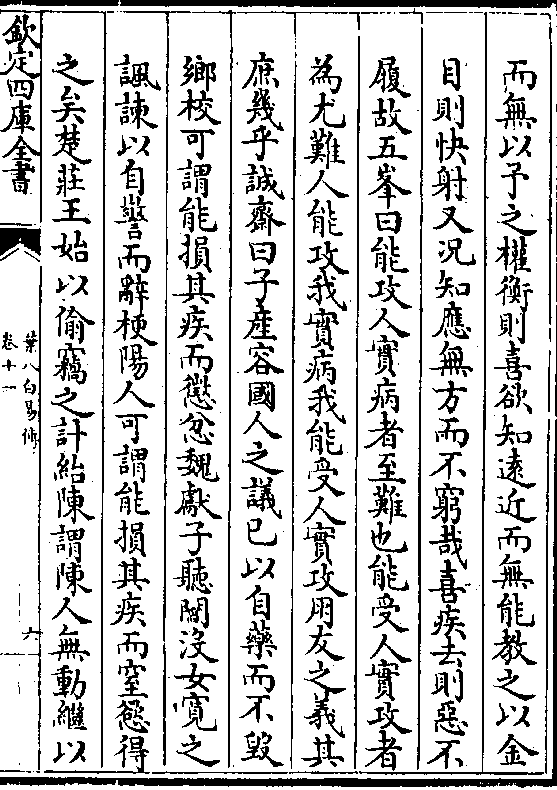 而無以予之權衡則喜欲知遠近而無能教之以金
目則快射又况知應無方而不窮哉喜疾去則惡不
履故五峯曰能攻人實病者至難也能受人實攻者
為尤難人能攻我實病我能受人實攻朋友之義其
庶幾乎誠齋曰子産容國人之議已以自藥而不毀
鄉校可謂能損其疾而懲忿魏獻子聽閻沒女寛之
諷諫以自警而辭梗陽人可謂能損其疾而窒慾得
之矣楚莊王始以偷竊之計紿陳謂陳人無動繼以
欽定四庫全書
葉八白易傳
卷十一
六